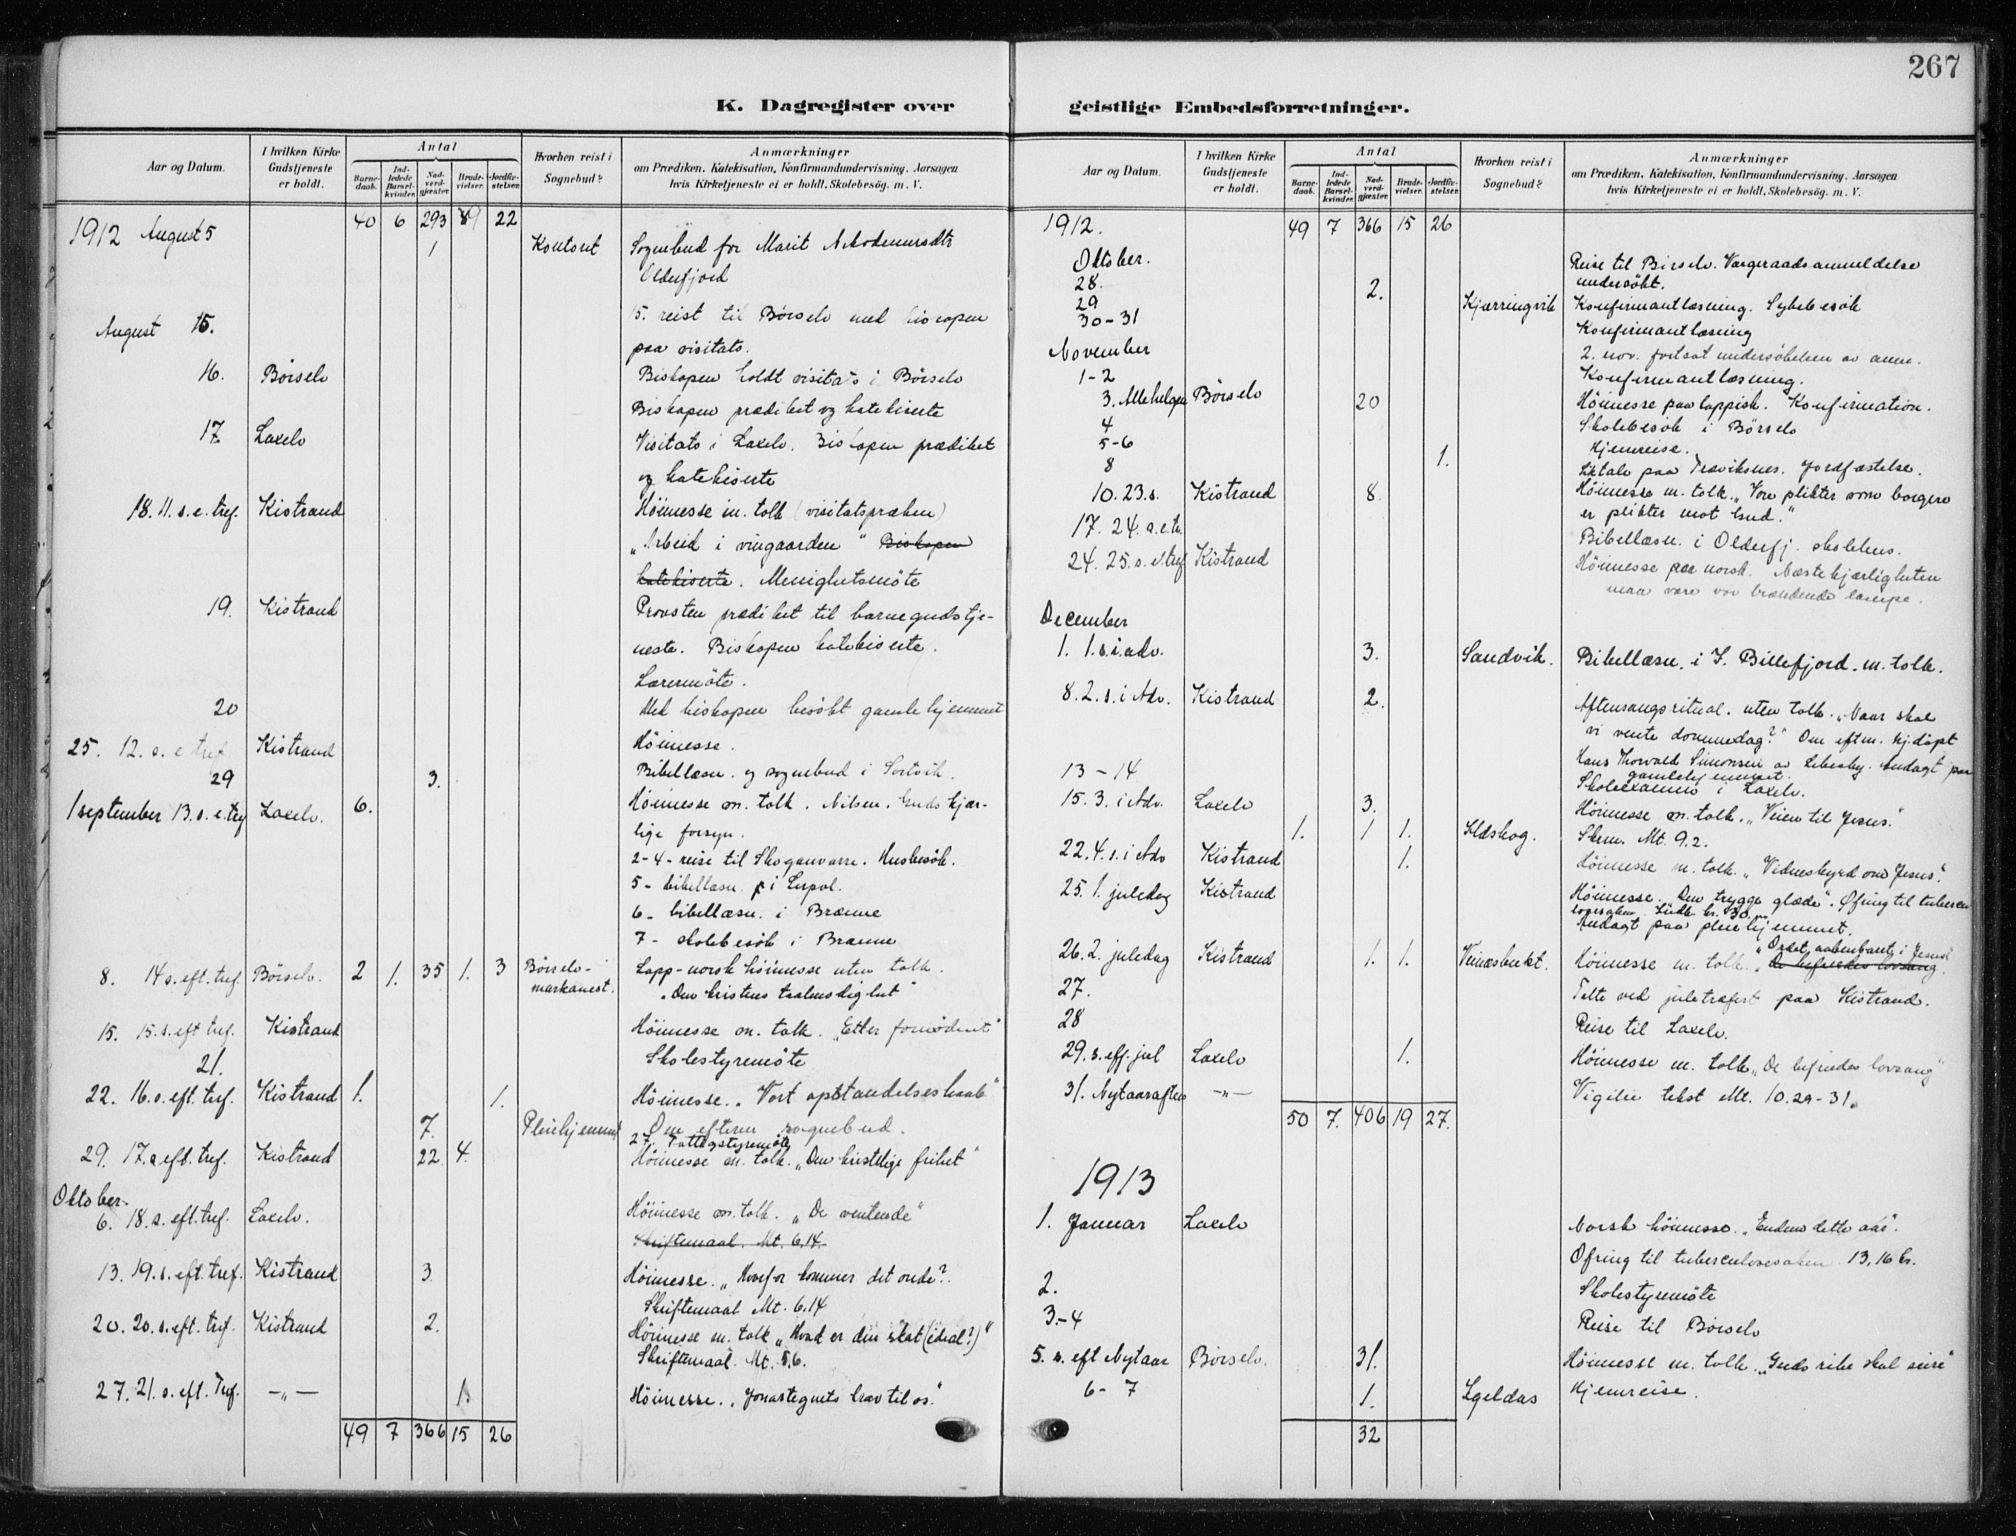 267
K. Dagregister over
geistlige Embedsforretninger.
Aar og Datum.
I hvilken Kirke Gudstjeneste er holdt.
Antal
Barnedaab.
Indledede Barselkvinder.
Nadverdgjæster.
Brudevielser.
Jordfæstelser.
Hvorhen reist i Sognebud?
Anmærkninger
om Prædiken, Katekisation, Konfirmandundervisning, Aarsagen
hvis Kirketjeneste ei er holdt, Skolebesøg. m. V.
40 6 293 89 22
1912 August 5 1 Kontout Sognebud for Marit
Olderfjord
August 15. 15. reist til Børselv med biskopen
paa visitats.
16. Børselv Biskopen holdt visitats i Børselv
Biskopen prædiket og katekiserte
17. Laxelv Visitats i Laxelv. Biskopen prædiket
og katekiserte
18. 11. s. e. tref. Kistrand Höimesse m. tolk (visitatspræken)
"Arbeid i vingaarden" Biskopen
katekiserte. Menighetsmöte
19. Kistrand Provsten prædiket til barnegudstje-
neste. Biskopen katekiserte.
Lærermöte.
20 Med biskopen besökt gamlehjemmet
25. 12. s. e tref. Kistrand Höimesse.
29 3. Bibellæsn. og sognebud i Sortvik.
1 september 13. s. e. tref Laxelv. 6. Höimesse m. tolk. Nilsen. Guds kjær-
lige forsyn.
2-4- reise til Skoganvarre. Husbesök.
5- bibellæsn. i Lerpol.
6- bibellæsn. i Brænne
7- skolebesök i Brænne
8. 14 s. eft. tref. Børselv. 2 1. 35 1. 3 Børselv-
markanest. Lapp-norsk höimesse uten tolk.
"Den kristens taalmodighet"
15. 15. s. eft tref. Kistrand Höimesse m. tolk. "Ett er fornödent"
21. Skolestyremöte
22. 16. s. eft. tref. Kistrand 1. 1. Höimesse. "Vort opstandelseshaab"
7. Pleiehjemmet Om efterm. sognebud.
27. Fattigstyremöte
29. 17. s eft. tref. Kistrand 22 4. Höimesse m. tolk. "Den kristelige frihet"
Oktober
6. 18. s. eft. tref. Laxelv. Höimesse m. tolk. "De ventende"
Skriftemaal. Mt. 6.14
13. 19. s. eft. tref. Kistrand 3. Höimesse. "Hvorfor kommer det onde?"
Skriftemaal Mt. 6.14
20. 20. s. eft. tref. Kistrand 2. Höimesse m. tolk "Hvad er din skat (ideal?)"
Skriftemaal. Mt. 5.6.
27. 21. s. eft. tref. -"- 1. Höimesse. "Jonastegnets krav til os."
49 7 366 15 26
Aar og Datum.
I hvilken Kirke Gudstjeneste er holdt.
Antal
Barnedaab.
Indledede Barselkvinder.
Nadverdgjæster.
Brudevielser.
Jordfæstelser.
Hvorhen reist i Sognebud?
Anmærkninger
om Prædiken, Katekisation, Konfirmandundervisning, Aarsagen
hvis Kirketjeneste ei er holdt, Skolebesøg. m. V.
1912. 49 7 366 15 26
Oktober.
28. Reise til Börselv. Vergeraadsanmeldelse
undersökt.
29 2. Kjærringvik Konfirmantlæsning. Sykebesök
30-31 Konfirmantlæsning
November
1-2 2. nov. fortsat undersökelsen av anm.
Konfirmantlæsning.
3. Allehelgen Børselv 20 Höimesse paa lappisk. Konfirmation.
4 Skolebesök i Børselv
5-6 Hjemreise.
8 1. Liktale paa Træviksnes. Jordfæstelse.
10. 23. s. Kistrand 8. Höimesse m. tolk. "Vore plikter som borgere
er plikter mot Gud."
17. 24. s. e. tr. Bibellæsn. i Olderfj. skolehus.
24. 25. s. e. tref Kistrand Höimesse paa norsk. Næstekjærligheten
maa være vor brændende lampe.
December
1. 1. s. i. adv. 3. Sandvik. Bibellæsn. i I. Billefjord. m. tolk.
8. 2. s. i Adv. Kistrand 2. Aftensangsritual. uten tolk. "Naar skal
vi vente dommedag?" Om eftm. hj.döpt
Hans Thorvald Simonsen av Andagt paa
gamlehjemmet.
13-14 Skoleexamen i Laxelv.
15. 3. i Adv. Laxelv 3. Höimesse m. tolk. "Veien til Jesus."
1. 1 1. Ildskog. Skrm. Mt. 9.2.
22. 4. s. i Adv Kistrand 1. Höimesse m. tolk. "Vidnesbyrd om Jesus".
25. 1. juledag Kistrand Höimesse. "Den trygge glæde". Ofring til tubercu-
losesaken. Indk. kr. 30.
Andagt paa pleiehjemmet.
26. 2. juledag Kistrand 1. 1. Veinæsbukt. Höimesse m. tolk. "Ordet aabenbaret i Jesus"
De befriedes lovsang.
27. Tilste ved juletræfest paa Kistrand.
28 Reise til Laxelv.
29. s. eft. jul Laxelv 1. Höimesse m. tolk "De befriedes lovsang"
31. Nytaarsaften -"- Vigilie tekst Mt. 10. 29-31.
50 7. 406 19 27.
1913
1. Januar Laxelv Norsk höimesse. "Endnu dette aar".
Ofring til tuberculosesaken. 13,16 kr.
2. Skolestyremöte
3.-4 Reise til Börselv
5. s. eft Nytaar Börselv. 31. Höimesse m. tolk. "Guds rike skal seire"
6-7 1. Igeldas Hjemreise.
32